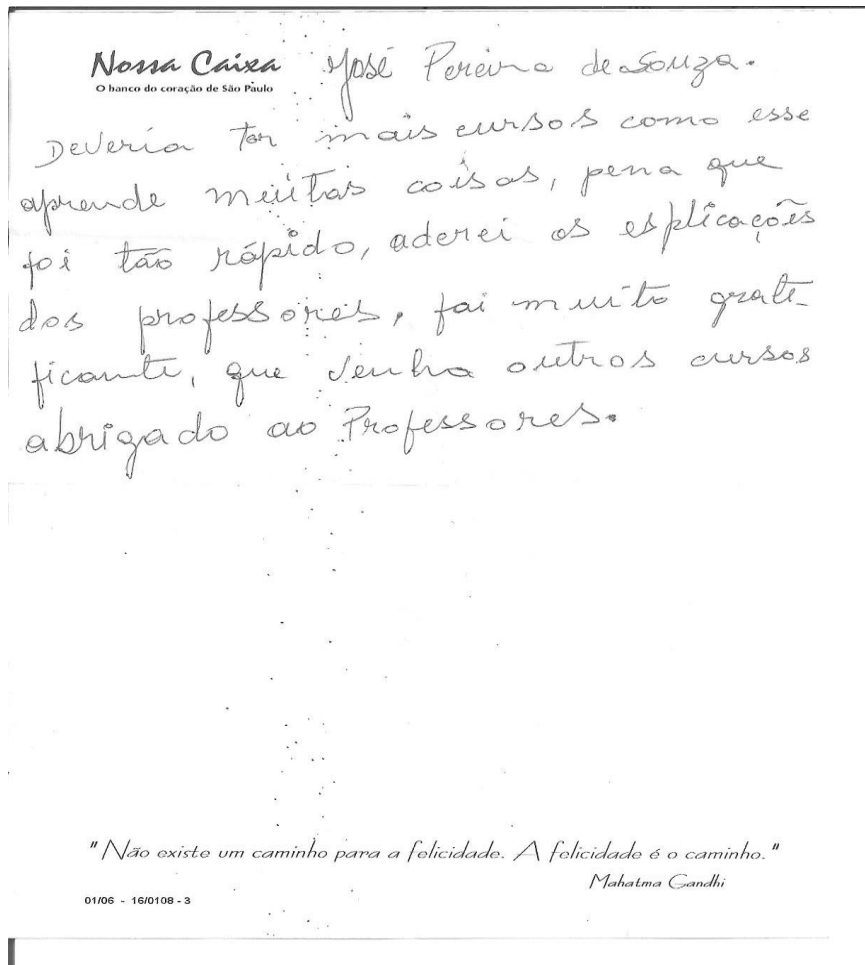 Nossa Caixa José Pereira de Souza.
O banco do coração de São Paulo
Deveria ter mais cursos como esse
aprende muitas coisas, pena que
foi tão rápido, aderei as esplicações
dos professores, foi muito grati-
ficante, que venha outros cursos
abrigado ao Professores.
"Não existe um caminho para a felicidade. A felicidade é o caminho."
Mahatma Gandhi
01/06 - 16/0108 - 3